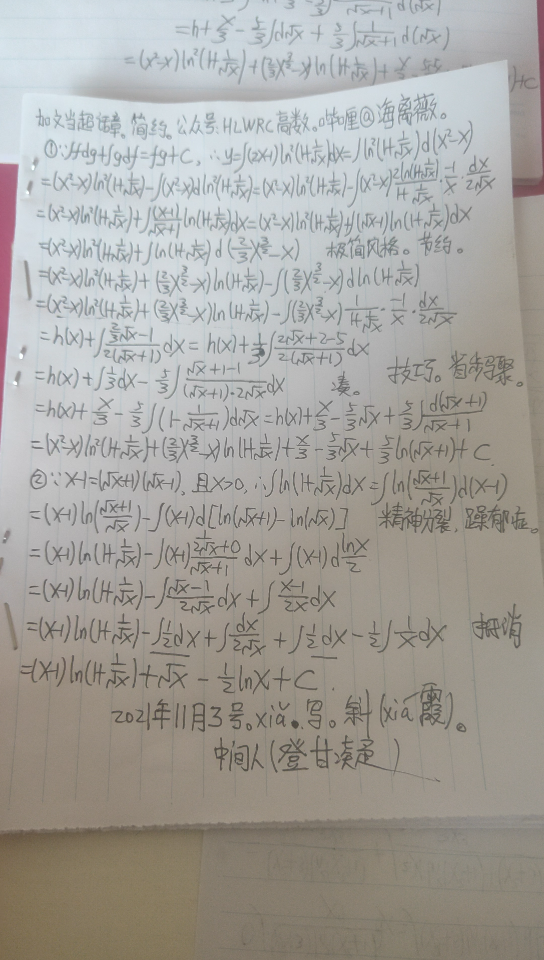 √x+1 d(√x)
=h+x/3-5/3∫d√x+5/3∫1/(√x+1)d(√x)
=(x²-x)ln²(1+1/√x)+(2/3x^(3/2)-x)ln(1+1/√x)+x/3 +C
简约。公众号:HLWRC高数。@海离薇。
①∵∫fdg+∫gdf=fg+C,∴y=∫(2x-1)ln²(1+1/√x)dx=∫ln²(1+1/√x)d(x²-x)
=(x²-x)ln²(1+1/√x)-∫(x²-x)dln²(1+1/√x)=(x²-x)ln²(1+1/√x)-∫(x²-x)2ln(1+1/√x)/(1+1/√x)·-1/x·dx/(2√x)
=(x²-x)ln²(1+1/√x)+∫(x-1)/(√x+1)ln(1+1/√x)dx=(x²-x)ln²(1+1/√x)+∫(√x-1)ln(1+1/√x)dx
=(x²-x)ln²(1+1/√x)+∫ln(1+1/√x)d(2/3x^(3/2)-x) 极简风格。节约。
=(x²-x)ln²(1+1/√x)+(2/3x^(3/2)-x)ln(1+1/√x)-∫(2/3x^(3/2)-x)dln(1+1/√x)
=(x²-x)ln²(1+1/√x)+(2/3x^(3/2)-x)ln(1+1/√x)-∫(2/3x^(3/2)-x)1/(1+1/√x)·-1/x·dx/(2√x)
=h(x)+∫(2/3√x-1)/(2(√x+1))dx=h(x)+1/3∫(2√x+2-5)/(2(√x+1))dx
=h(x)+∫1/3dx-5/3∫(√x+1-1)/((√x+1)·2√x)dx 凑。 技巧。省步骤。
=h(x)+x/3-5/3∫(1-1/(√x+1))d√x=h(x)+x/3-5/3√x+5/3∫d(√x+1)/(√x+1)
=(x²-x)ln²(1+1/√x)+(2/3x^(3/2)-x)ln(1+1/√x)+x/3-5/3√x+5/3ln(√x+1)+C.
②∵x-1=(√x+1)(√x-1),且x>0,∴∫ln(1+1/√x)dx=∫ln((√x+1)/√x)d(x-1)
=(x-1)ln((√x+1)/√x)-∫(x-1)d[ln(√x+1)-ln(√x)] 精神分裂,躁郁症。
=(x-1)ln(1+1/√x)-∫(x-1)(1/(2√x)+0)/(√x+1)dx+∫(x-1)d(lnx/2)
=(x-1)ln(1+1/√x)-∫(√x-1)/(2√x)dx+∫(x-1)/(2x)dx
=(x-1)ln(1+1/√x)-∫1/2dx+∫dx/(2√x)+∫1/2dx-1/2∫1/xdx 抵消
=(x-1)ln(1+1/√x)+√x-1/2lnx+C.
2021年11月3号。xià。写。斜(xiá霞)。
中间人(登甘凑